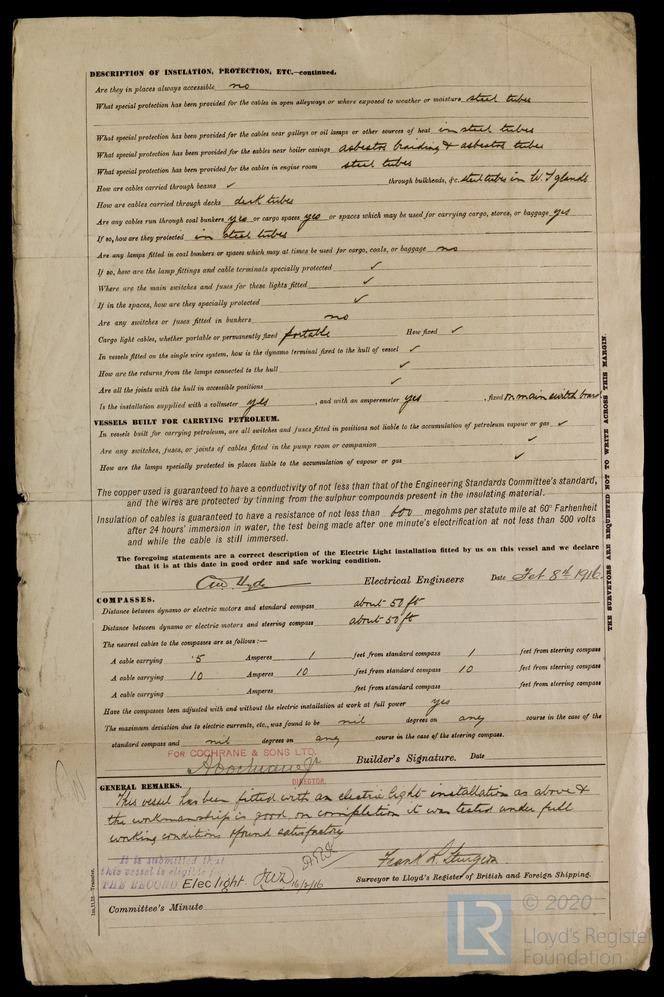 DESCRIPTION OF INSULATION, PROTECTION, ETC.—continued.
Are they in places always accessible no
What special protection has been provided for the cables in open alleyways or where exposed to weather or moisture steel tubes
What special protection has been provided for the cables near galleys or oil lamps or other sources of heat in steel tubes
What special protection has been provided for the cables near boiler casings asbestos braiding & asbestos tubes
What special protection has been provided for the cables in engine room steel tubes
How are cables carried through beams ✓ through bulkheads, &c. steel tubes in W.T glands
How are cables carried through decks deck tubes
Are any cables run through coal bunkers yes or cargo spaces yes or spaces which may be used for carrying cargo, stores, or baggage yes
If so, how are they protected in steel tubes
Are any lamps fitted in coal bunkers or spaces which may at times be used for cargo, coals, or baggage no
If so, how are the lamp fittings and cable terminals specially protected ✓
Where are the main switches and fuses for these lights fitted ✓
If in the spaces, how are they specially protected ✓
Are any switches or fuses fitted in bunkers no
Cargo light cables, whether portable or permanently fixed portable How fixed ✓
In vessels fitted on the single wire system, how is the dynamo terminal fixed to the hull of vessel ✓
How are the returns from the lamps connected to the hull ✓
Are all the joints with the hull in accessible positions ✓
Is the installation supplied with a voltmeter yes, and with an amperemeter yes, fixed on main switch board
VESSELS BUILT FOR CARRYING PETROLEUM.
In vessels built for carrying petroleum, are all switches and fuses fitted in positions not liable to the accumulation of petroleum vapour or gas ✓
Are any switches, fuses, or joints of cables fitted in the pump room or companion ✓
How are the lamps specially protected in places liable to the accumulation of vapour or gas ✓
The copper used is guaranteed to have a conductivity of not less than that of the Engineering Standards Committee's standard,
and the wires are protected by tinning from the sulphur compounds present in the insulating material.
Insulation of cables is guaranteed to have a resistance of not less than 600 megohms per statute mile at 60° Farhenheit
after 24 hours' immersion in water, the test being made after one minute's electrification at not less than 500 volts
and while the cable is still immersed.
The foregoing statements are a correct description of the Electric Light installation fitted by us on this vessel and we declare
that it is at this date in good order and safe working condition.
Hyde Electrical Engineers Date Feb 8th 1916.
COMPASSES.
Distance between dynamo or electric motors and standard compass about 50 ft
Distance between dynamo or electric motors and steering compass about 50 ft
The nearest cables to the compasses are as follows:—
A cable carrying .5 Amperes 1 feet from standard compass 1 feet from steering compass
A cable carrying 10 Amperes 10 feet from standard compass 10 feet from steering compass
A cable carrying Amperes feet from standard compass feet from steering compass
Have the compasses been adjusted with and without the electric installation at work at full power yes
The maximum deviation due to electric currents, etc., was found to be nil degrees on any course in the case of the
standard compass and nil degrees on any course in the case of the steering compass.
FOR COCHRANE & SONS LTD.
A Cochrane Jr Builder's Signature. Date
DIRECTOR.
GENERAL REMARKS.
This vessel has been fitted with an electric light installation as above &
the workmanship is good, on completion it was tested under full
working conditions & found satisfactory
It is submitted that
this vessel is eligible for
THE RECORD Elec light. 16/2/16
Frank L. Sturgeon.
Surveyor to Lloyd's Register of British and Foreign Shipping.
Committee's Minute
THE SURVEYORS ARE REQUESTED NOT TO WRITE ACROSS THIS MARGIN.
LR © 2020
Lloyd's Register
Foundation